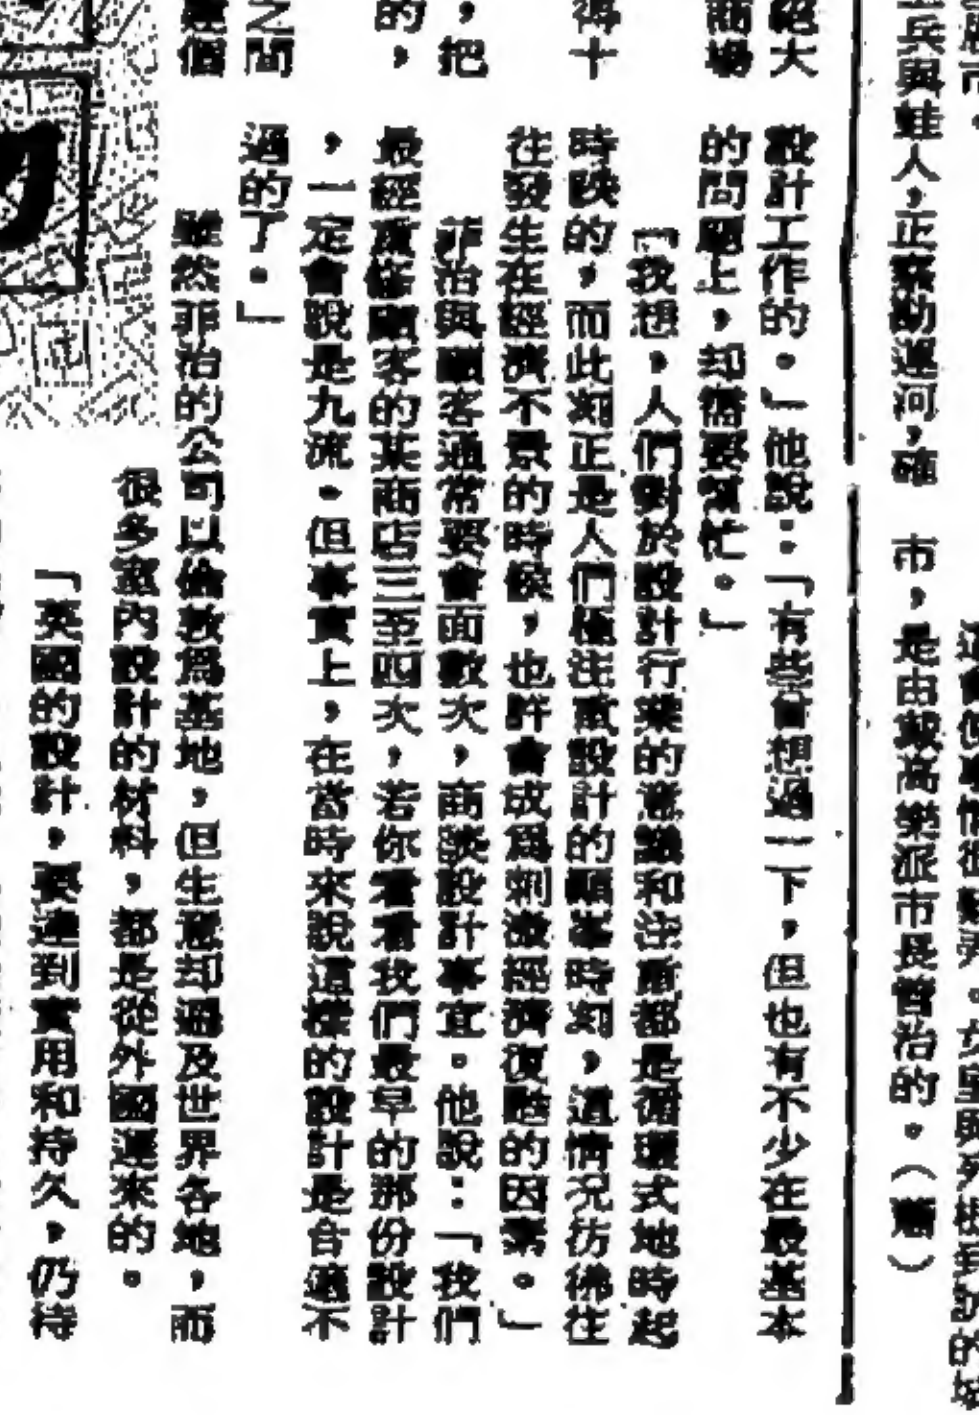 兵與蛙人，正來助運河，確
市，是由戴高樂派市長管治的。（爾）
絕大
商場
得十
，把
的，
之間
這個
設計工作的。」他說：「有些曾想過一下，但也有不少在最基本
的問題上，却需要幫忙。」
「我想，人們對於設計行業的意識和注重都是循環式地時起
時跌的，而此刻正是人們極注重設計的顛峯時刻，這情況彷彿往
往發生在經濟不景的時候，也許會成爲刺激經濟復甦的因素。」
菲治與顧客通常要會面數次，商談設計事宜。他說：「我們
最經　　顧客的某商店三至四次，若你看看我們最早的那份設計
，一定會說是九流。但事實上，在當時來說這樣的設計是合適不
過的了。」
雖然菲治的公司以倫敦爲基地，但生意却遍及世界各地，而
很多室內設計的材料，都是從外國運來的。
「英國的設計，要達到實用和持久，仍待